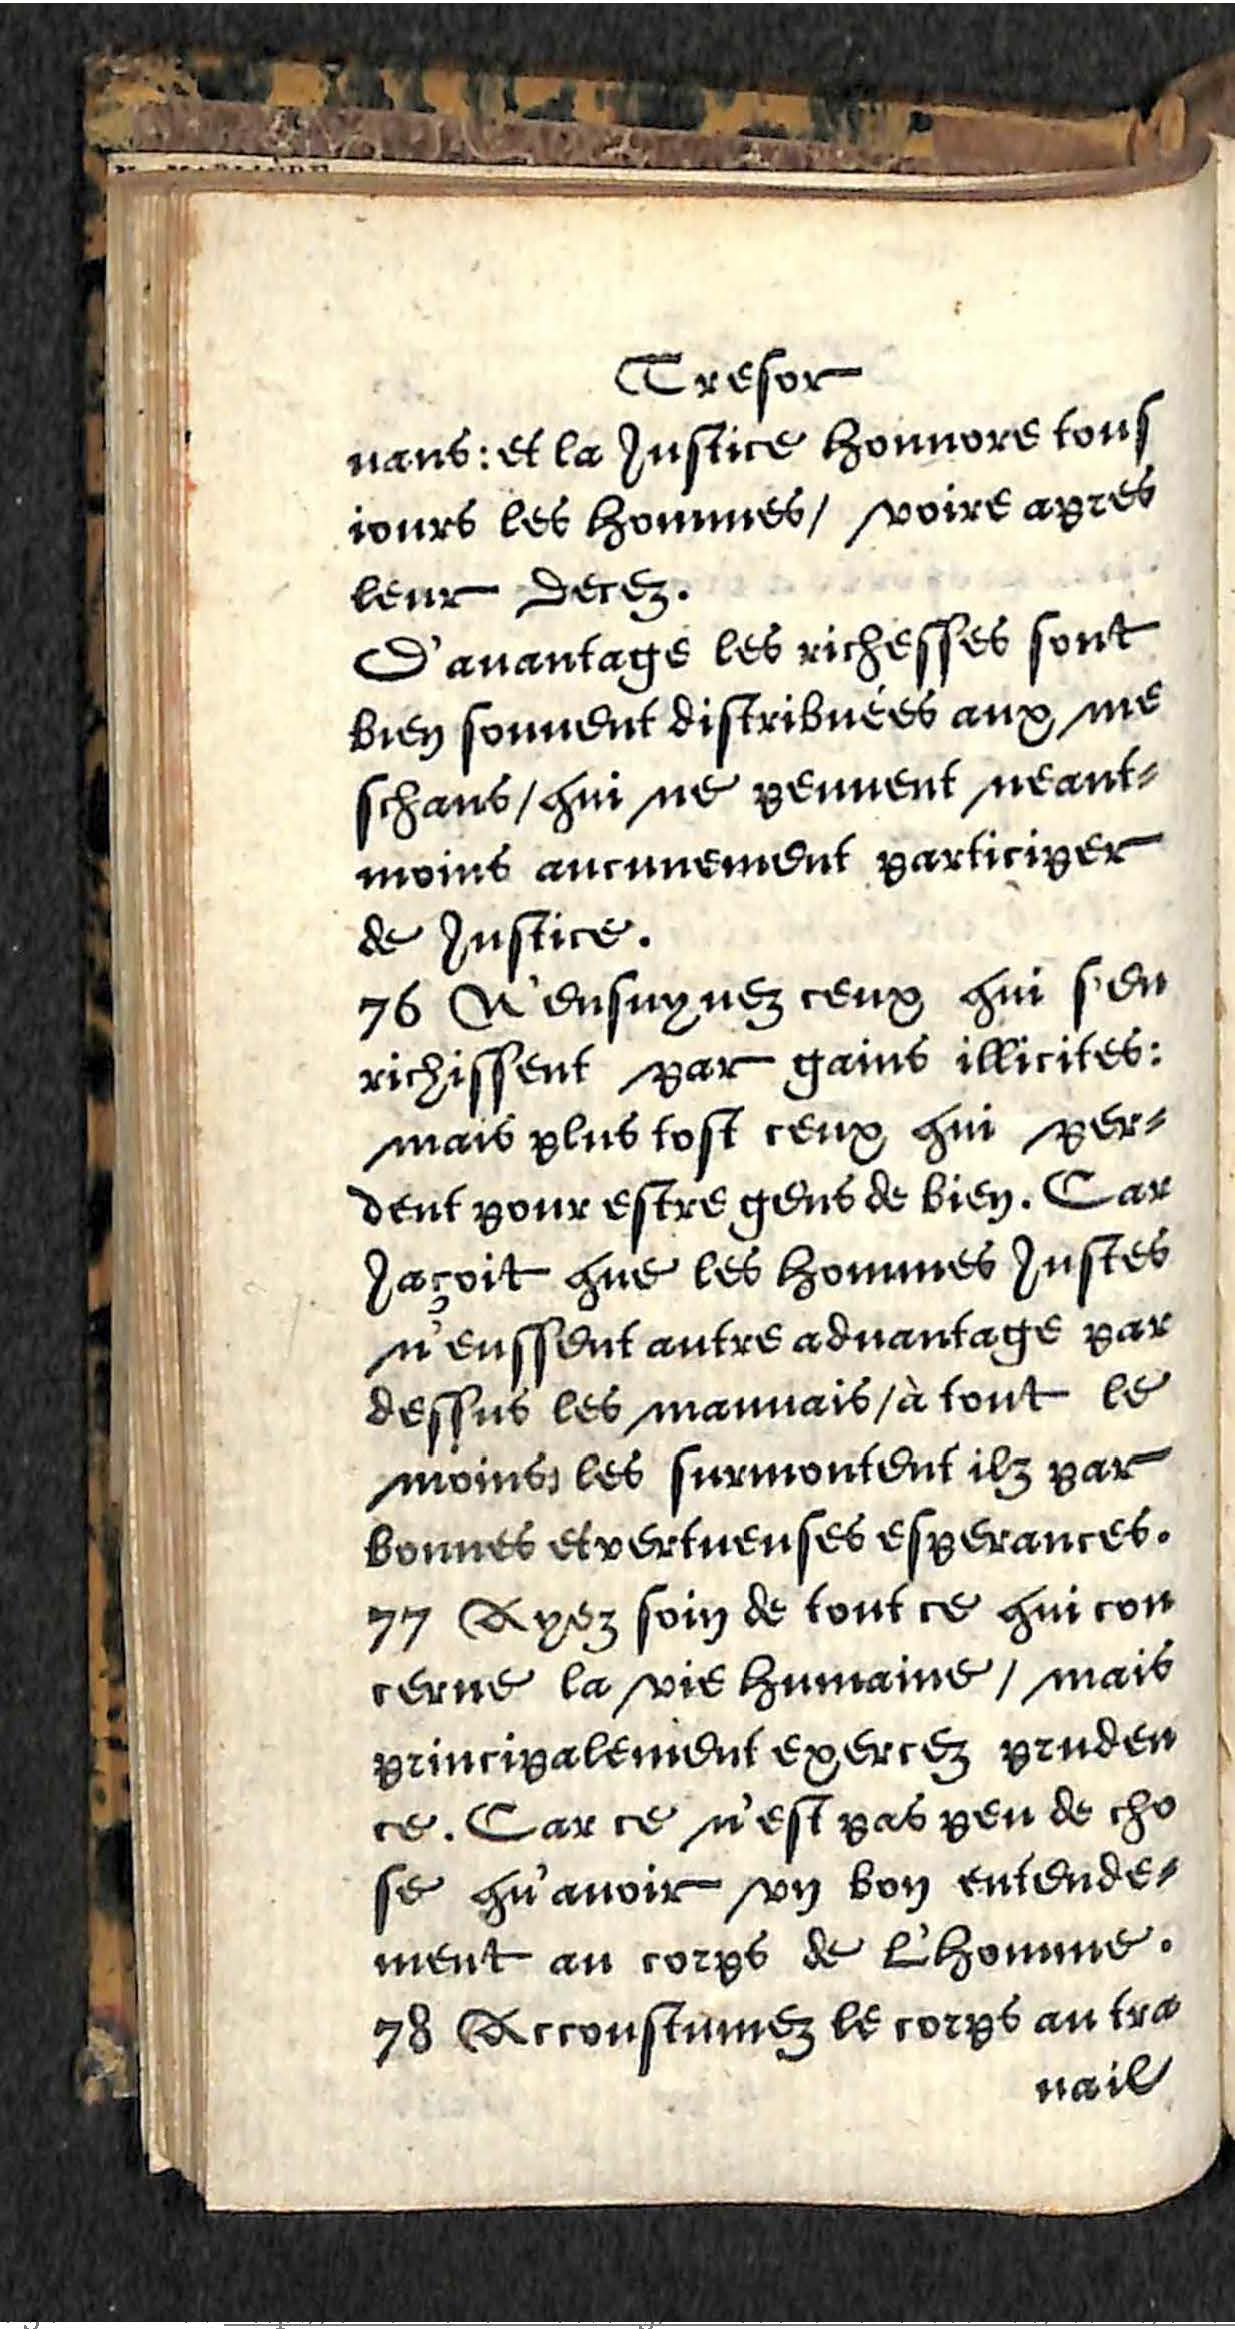 Tresor
uans: et la Justice honnore tous
iours les hommes/ voire apres
leur decez.
D'auantage les richesses sont
bien souuent distribuées aux me
schans/qui ne peuuent neant-
moins aucunement participer
de Justice.
76 N'ensuyuez ceux qui s'en
richissent par gains illicites:
mais plus tost ceux qui per-
dent pour estre gens de bien. Car
Jaçoit que les hommes Justes
n'eussent autre aduantage par
dessus les mauuais/à tout le
moins les surmontent ilz par
bonnes et vertueuses esperances.
77 Ayez soin de tout ce qui con
cerne la vie humaine/ mais
principalement exercez pruden
ce. Car ce n'est pas peu de cho
se qu'auoir vn bon entende-
ment au corps de L'homme.
78 Accoustumez le corps au tra
uail